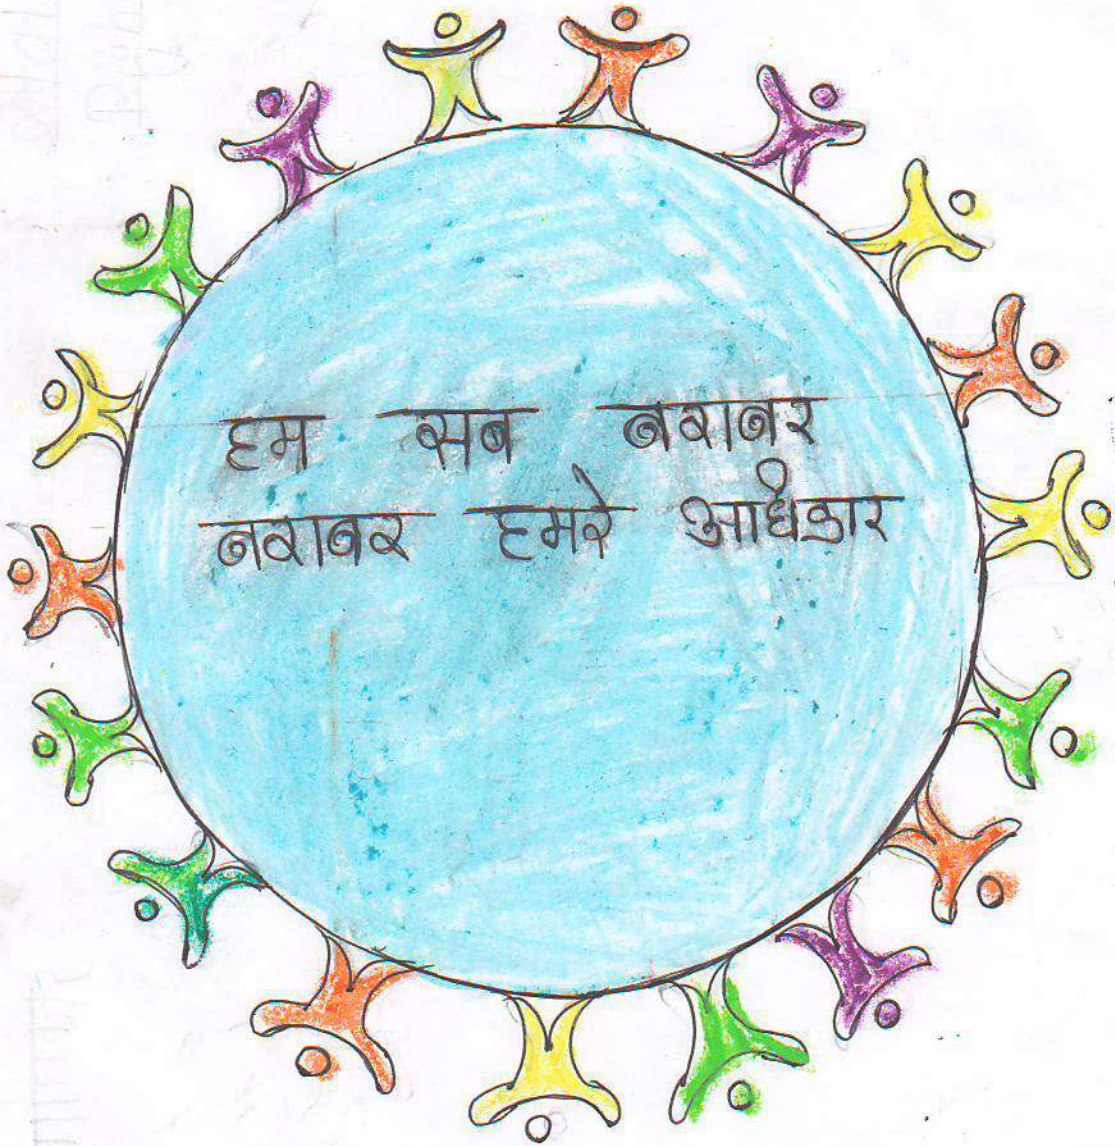 हम सब बराबर
बराबर हमरे अधिकार